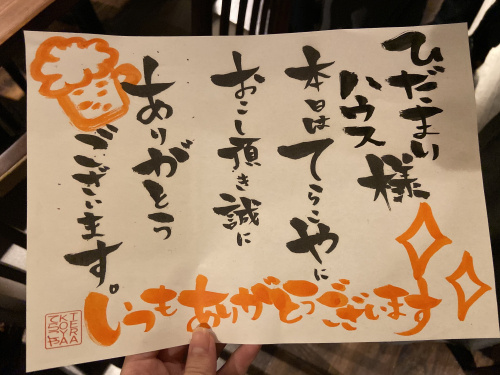 ひだまり
ハウス様
本日はてらこやに
おこし頂き誠に
ありがとう
ございます。
いつもありがとうございます